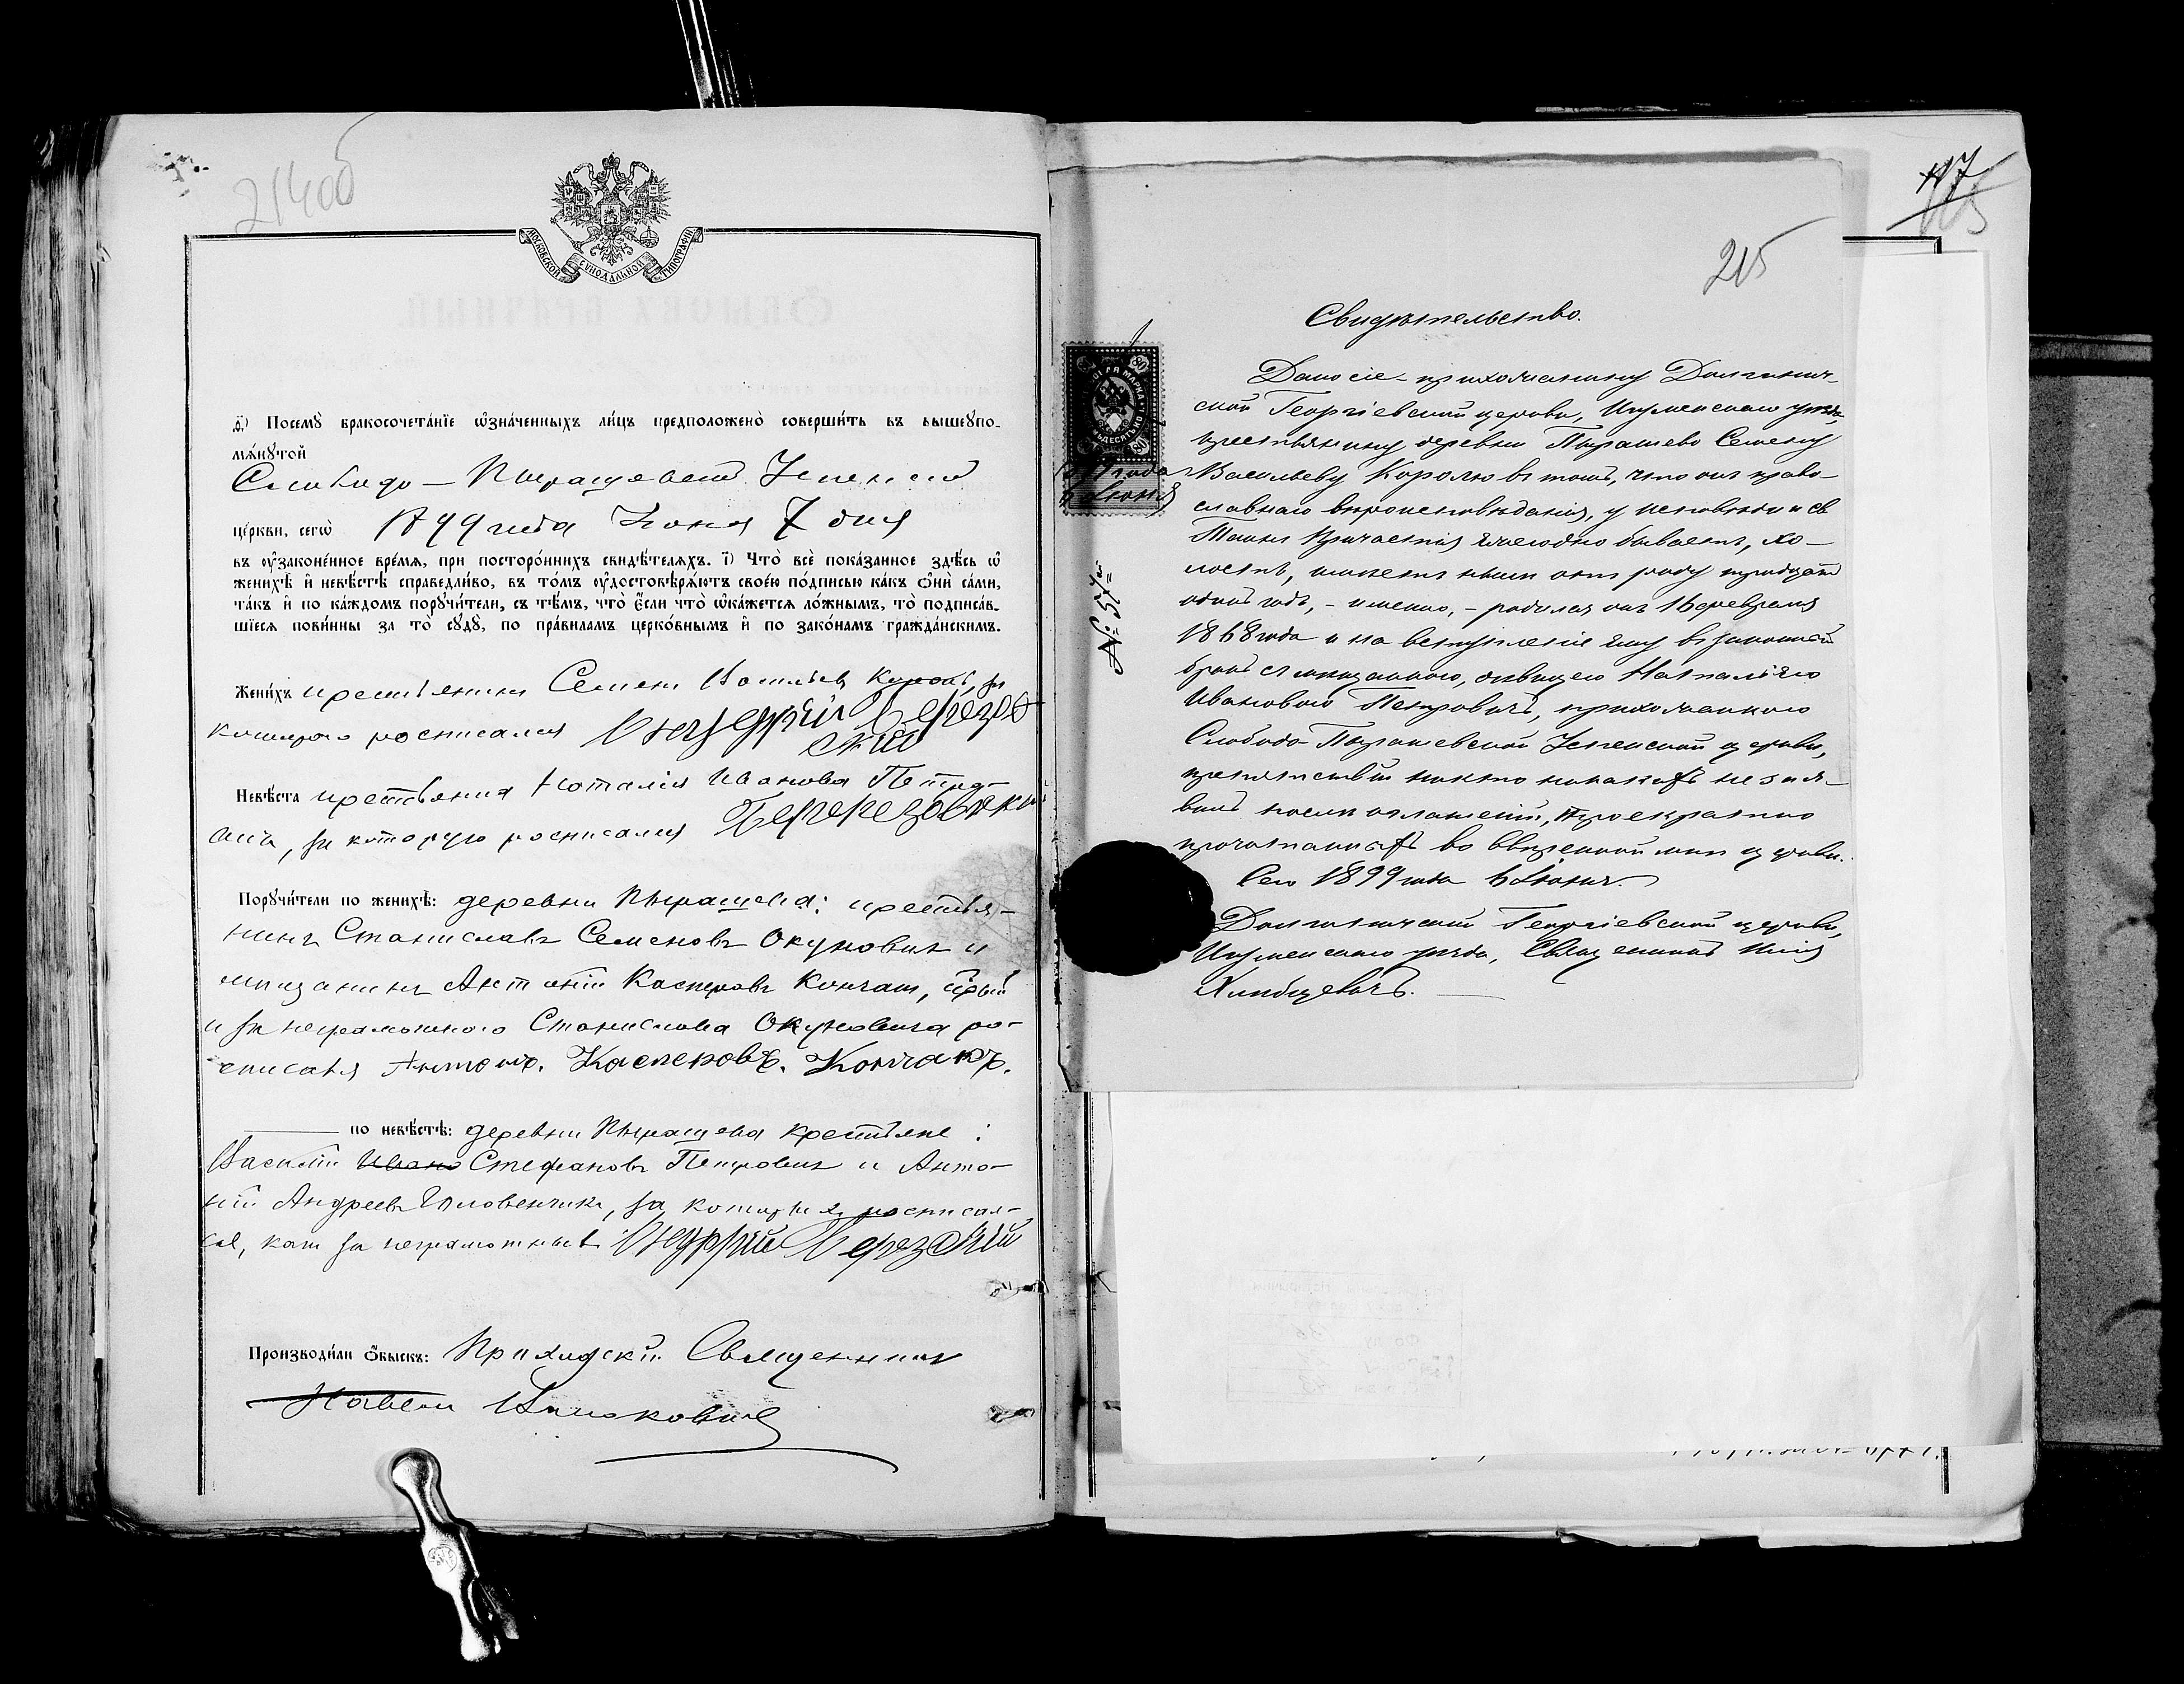 214об
МОСКОВСКОЙ СѴНОДАЛЬНОЙ ТИПОГРАФІИ
ѳ҃) Посемꙋ̀ бракосочета́нїе ѡ҆зна́ченныхъ ли́цъ предположено̀ соверши́ть въ вышеꙋпо-
мѧ́нꙋтой
Слободо-Пырашевской Успенской
це́ркви, сегѡ̀ 1899 года Іюня 7 дня
въ ᲂу҆зако́ненное вре́мѧ, при посторо́ннихъ свидѣ́телѧхъ. і҃) Что̀ всѐ пока́занное здѣ́сь ѡ҆
женихѣ̀ и҆ невѣ́стѣ справедли́во, въ то́мъ ᲂу҆достовѣрѧ́ютъ свое́ю по́дписью ка́къ ѻ҆нѝ са́ми,
та́къ и҆ по ка́ждомъ порꙋчи́тели, съ тѣ́мъ, что̀ є҆́сли что̀ ѡ҆ка́жетсѧ ло́жнымъ, то̀ подписа́в-
шїесѧ пови́нны за то̀ сꙋдꙋ̀, по пра́виламъ церко́внымъ и҆ по зако́намъ гражда́нскимъ.
Жени́хъ крестьянинъ Семенъ Васильевъ Король, за
котораго росписался Андрей Березов
скій
Невѣ́ста крестьянка Наталія Иванова Петро-
вичъ, за которую росписался
Порꙋчи́тели по женихѣ̀: деревни Пырашева: крестья-
нинъ Станиславъ Семеновъ Окуновичъ и
мѣщанинъ Антоній Касперовъ Кончакъ,
и за неграмотнаго Станислава Окуновича ро-
списался Антонъ. Касперовъ. Кончакъ.
по невѣ́стѣ: деревни Пырашева крестьяне:
Василій Ивано Стефановъ Петровичъ и Анто-
ній Андреевъ Головенчикъ, за которыхъ росписал-
ся, какъ за неграмотныхъ Андрей Березовскій
Производи́ли ѻ҆́быскъ: Приходскій Священникъ
Павелъ
117
215
Свидѣтельство.
Дано сіе прихожанину Долгинич-
ской Георгіевской церкви, Игуменскаго уѣзда,
крестьянину деревни Пырашево Семену
Васильеву Королю въ томъ, что онъ право-
славнаго вѣроисповѣданія, у исповѣди и св
Таинъ Причастія ежегодно бываетъ, хо-
лостъ, имѣетъ нынѣ отъ роду тридцать
одинъ годъ, - именно, - родился онъ 16 февраля
1868 года и на вступленіе ему въ законный
бракъ съ мѣщанкою, дѣвицею Наталіею
Ивановою Петровичъ, прихожанкою
Слободо Пырашевской Успенской церкви,
препятствій никто никакихъ не зая-
вилъ послѣ оглашеній, троекратно
прочитанныхъ во ввѣренной мнѣ церкви.
Сего 1899 года 6 Іюня.
Долгиничской Георгіевской церкви,
Игуменскаго уѣзда, Священникъ Илія
Хлѣбцевичъ.
1899 года
6 Іюня
№ 57й
80